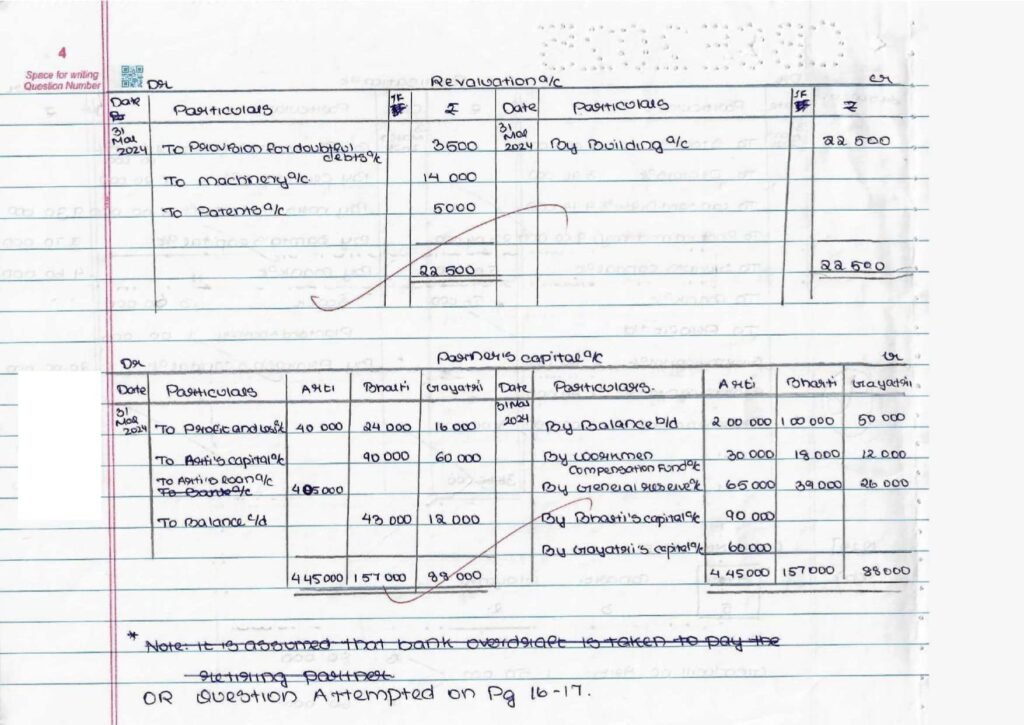 4
Space for writing
Question Number
Dr Revaluation a/c Cr
Date Particulars JF ₹ Date Particulars JF ₹
31 Mar 2024 To Provision for doubtful debts a/c 3500 31 Mar 2024 By Building a/c 22 500
To Machinery a/c 14 000
To Patents a/c 5000
22 500 22 500
Dr Partner's capital a/c Cr
Date Particulars Arti Bharti Gayatri Date Particulars. Arti Bharti Gayatri
31 Mar 2024 To Profit and Loss a/c 40 000 24 000 16 000 31 Mar 2024 By Balance b/d 2 00 000 1 00 000 50 000
To Arti's capital a/c 90 000 60 000 By Workmen Compensation Fund a/c 30 000 18 000 12 000
To Arti's Loan a/c
To Bank a/c 405000 By General Reserve a/c 65 000 39 000 26 000
To Balance c/d 43 000 12 000 By Bharti's capital a/c 90 000
By Gayatri's capital a/c 60 000
4 45 000 1 57 000 88 000 4 45 000 157 000 88 000
* Note: It is assumed that bank overdraft is taken to pay the
retiring partner
OR Question Attempted on Pg 16-17.